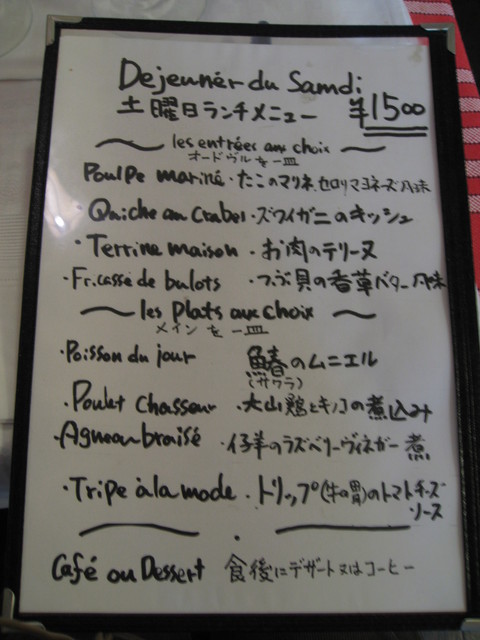 Dejeunér du Samdi
土曜日ランチメニュー ¥1500
les entrées aux choix
オードヴルを一皿
Poulpe mariné・たこのマリネ セロリマヨネーズ風味
・Quiche au Crabe・ズワイガニのキッシュ
・Terrine maison・お肉のテリーヌ
・Fricassé de bulots ・つぶ貝の香草バター風味
les Plats aux choix
メインを一皿
・Poisson du jour 鰆のムニエル
(サワラ)
・Poulet Chasseur ・大山鶏とキノコの煮込み
・Agneau braisé ・仔羊のラズベリーヴィネガー煮
・Tripe à la mode・トリップ(牛の胃)のトマトチーズ
ソース
Café ou Dessert 食後にデザート又はコーヒー